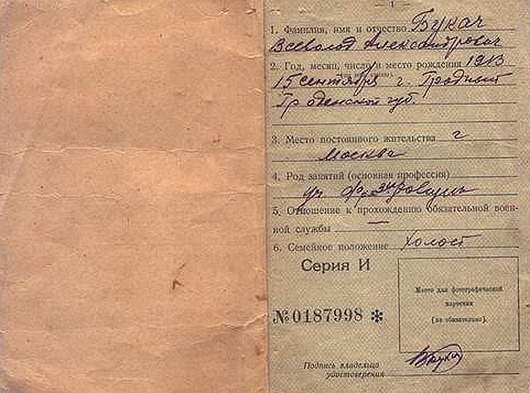 — 1 —
1. Фамилия, имя и отчество Букач
Всеволод Александрович
2. Год, месяц, число и место рождения 1913
15 сентября г. Гродно
Гроденской губ.
3. Место постоянного жительства г
Москва
4. Род занятий (основная профессия)
уч.
5. Отношение к прохождению обязательной воен-
ной службы —
6. Семейное положение холост
Серия И
Место для фотографической
карточки
(не обязательно).
№ 0187998 *
Подпись владельца
удостоверения